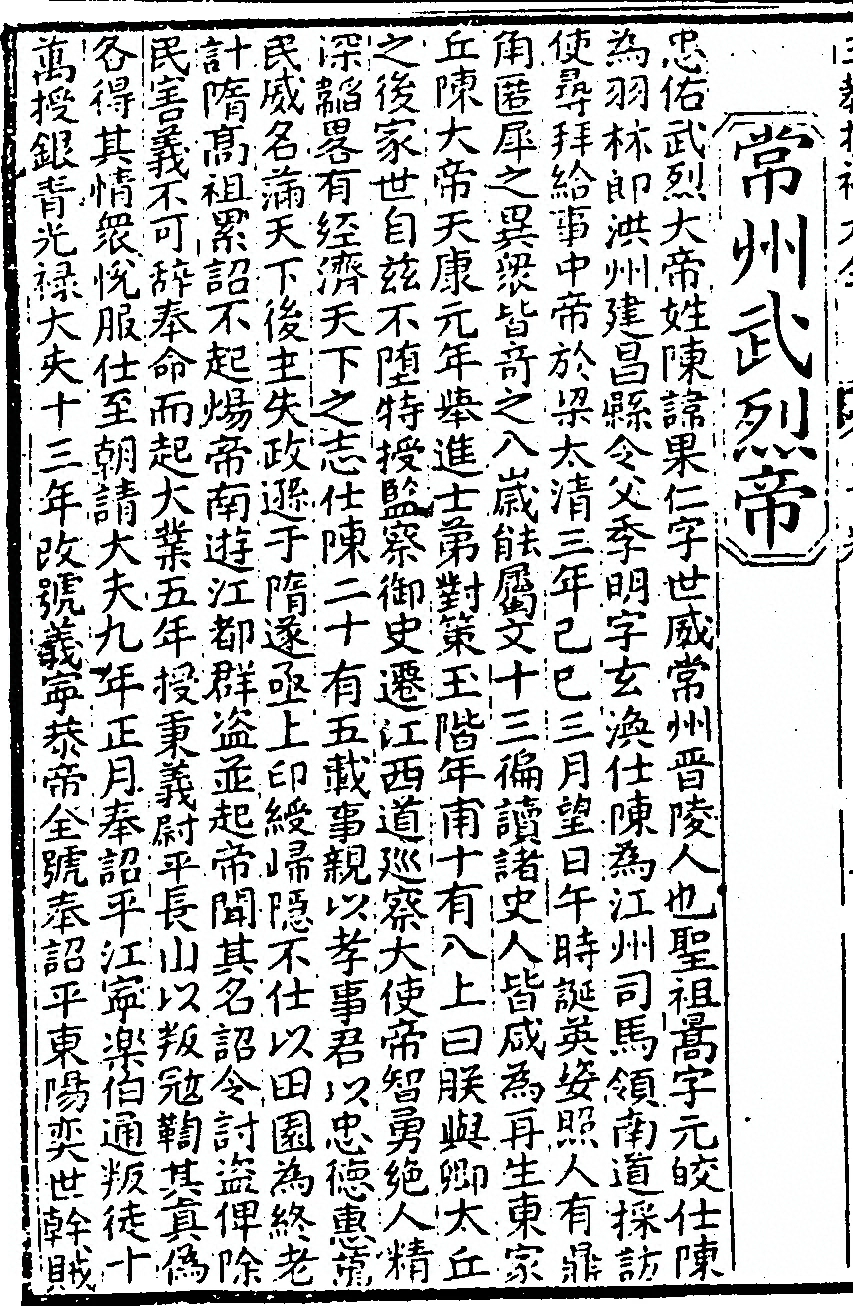 常州武烈帝
忠佑武烈大帝姓陳諱果仁字世威常州晋陵人也聖祖暠字元皎仕陳
為羽林郎洪州建昌縣令父季明字玄渙仕陳為江州司馬領南道採訪
使尋拜給事中帝於梁太清三年己巳三月望日午時誕英姿照人有鼎
角匿犀之異衆皆竒之八歳能屬文十三徧讀諸史人皆咸為再生東家
丘陳大帝天康元年舉進士第對策玉階年甫十有八上曰朕與卿太丘
之後家世自兹不墮特授監察御史遷江西道巡察大使帝智勇絶人精
深韜畧有経濟天下之志仕陳二十有五載事親以孝事君以忠德惠
民威名滿天下後主失政遜于隋遂亟上印綬㱕隱不仕以田園為終老
計隋髙祖累詔不起煬帝南遊江都群盗並起帝聞其名詔令討盗俾除
民害義不可辞奉命而起大業五年授秉義尉平長山以叛冦鞫其真偽
各得其情衆悅服仕至朝請大夫九年正月奉詔平江寜樂伯通叛徒十
萬授銀青光禄大夫十三年改號義寜恭帝全號奉詔平東陽奕世幹賊